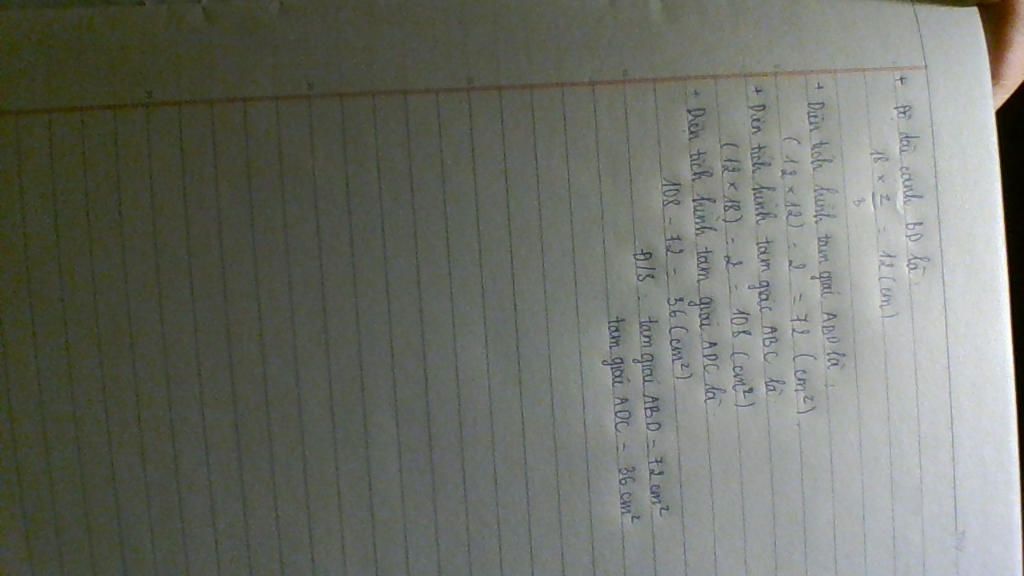 + Độ dài cạnh BD là
18 × 2/3 = 12 (cm)
+ Diện tích hình tam giác ABD là :
(12 × 12) : 2 = 72 (cm²)
+ Diện tích hình tam giác ABC là
(12 × 18) : 2 = 108 (cm²)
+ Diện tích hình tam giác ADC là
108 - 72 = 36 (cm²)
Đ/S : tam giác ABD = 72 cm²
tam giác ADC = 36 cm²